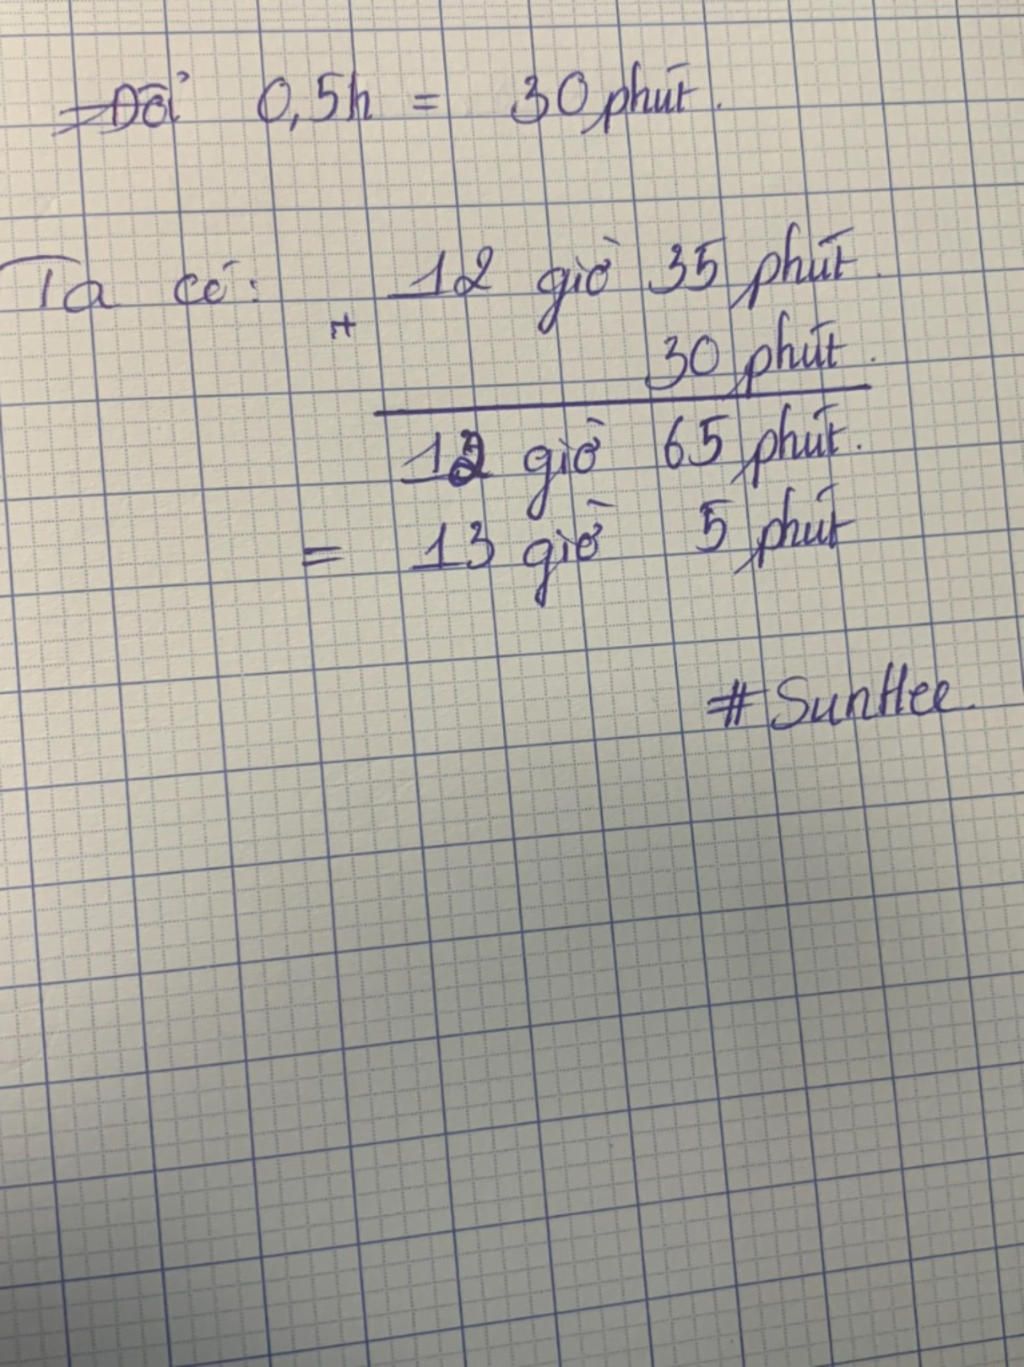 Đổi 0,5h = 30 phút.
Ta có: 12 giờ 35 phút.
+
30 phút.
12 giờ 65 phút.
= 13 giờ 5 phút
# SunHee